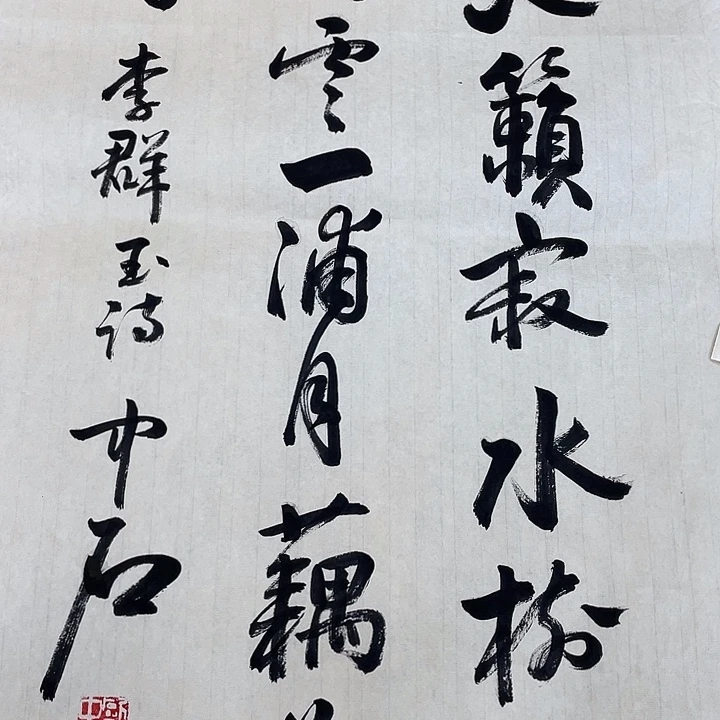 籟寂水榭
雲一浦月藕
李群玉詩 中石